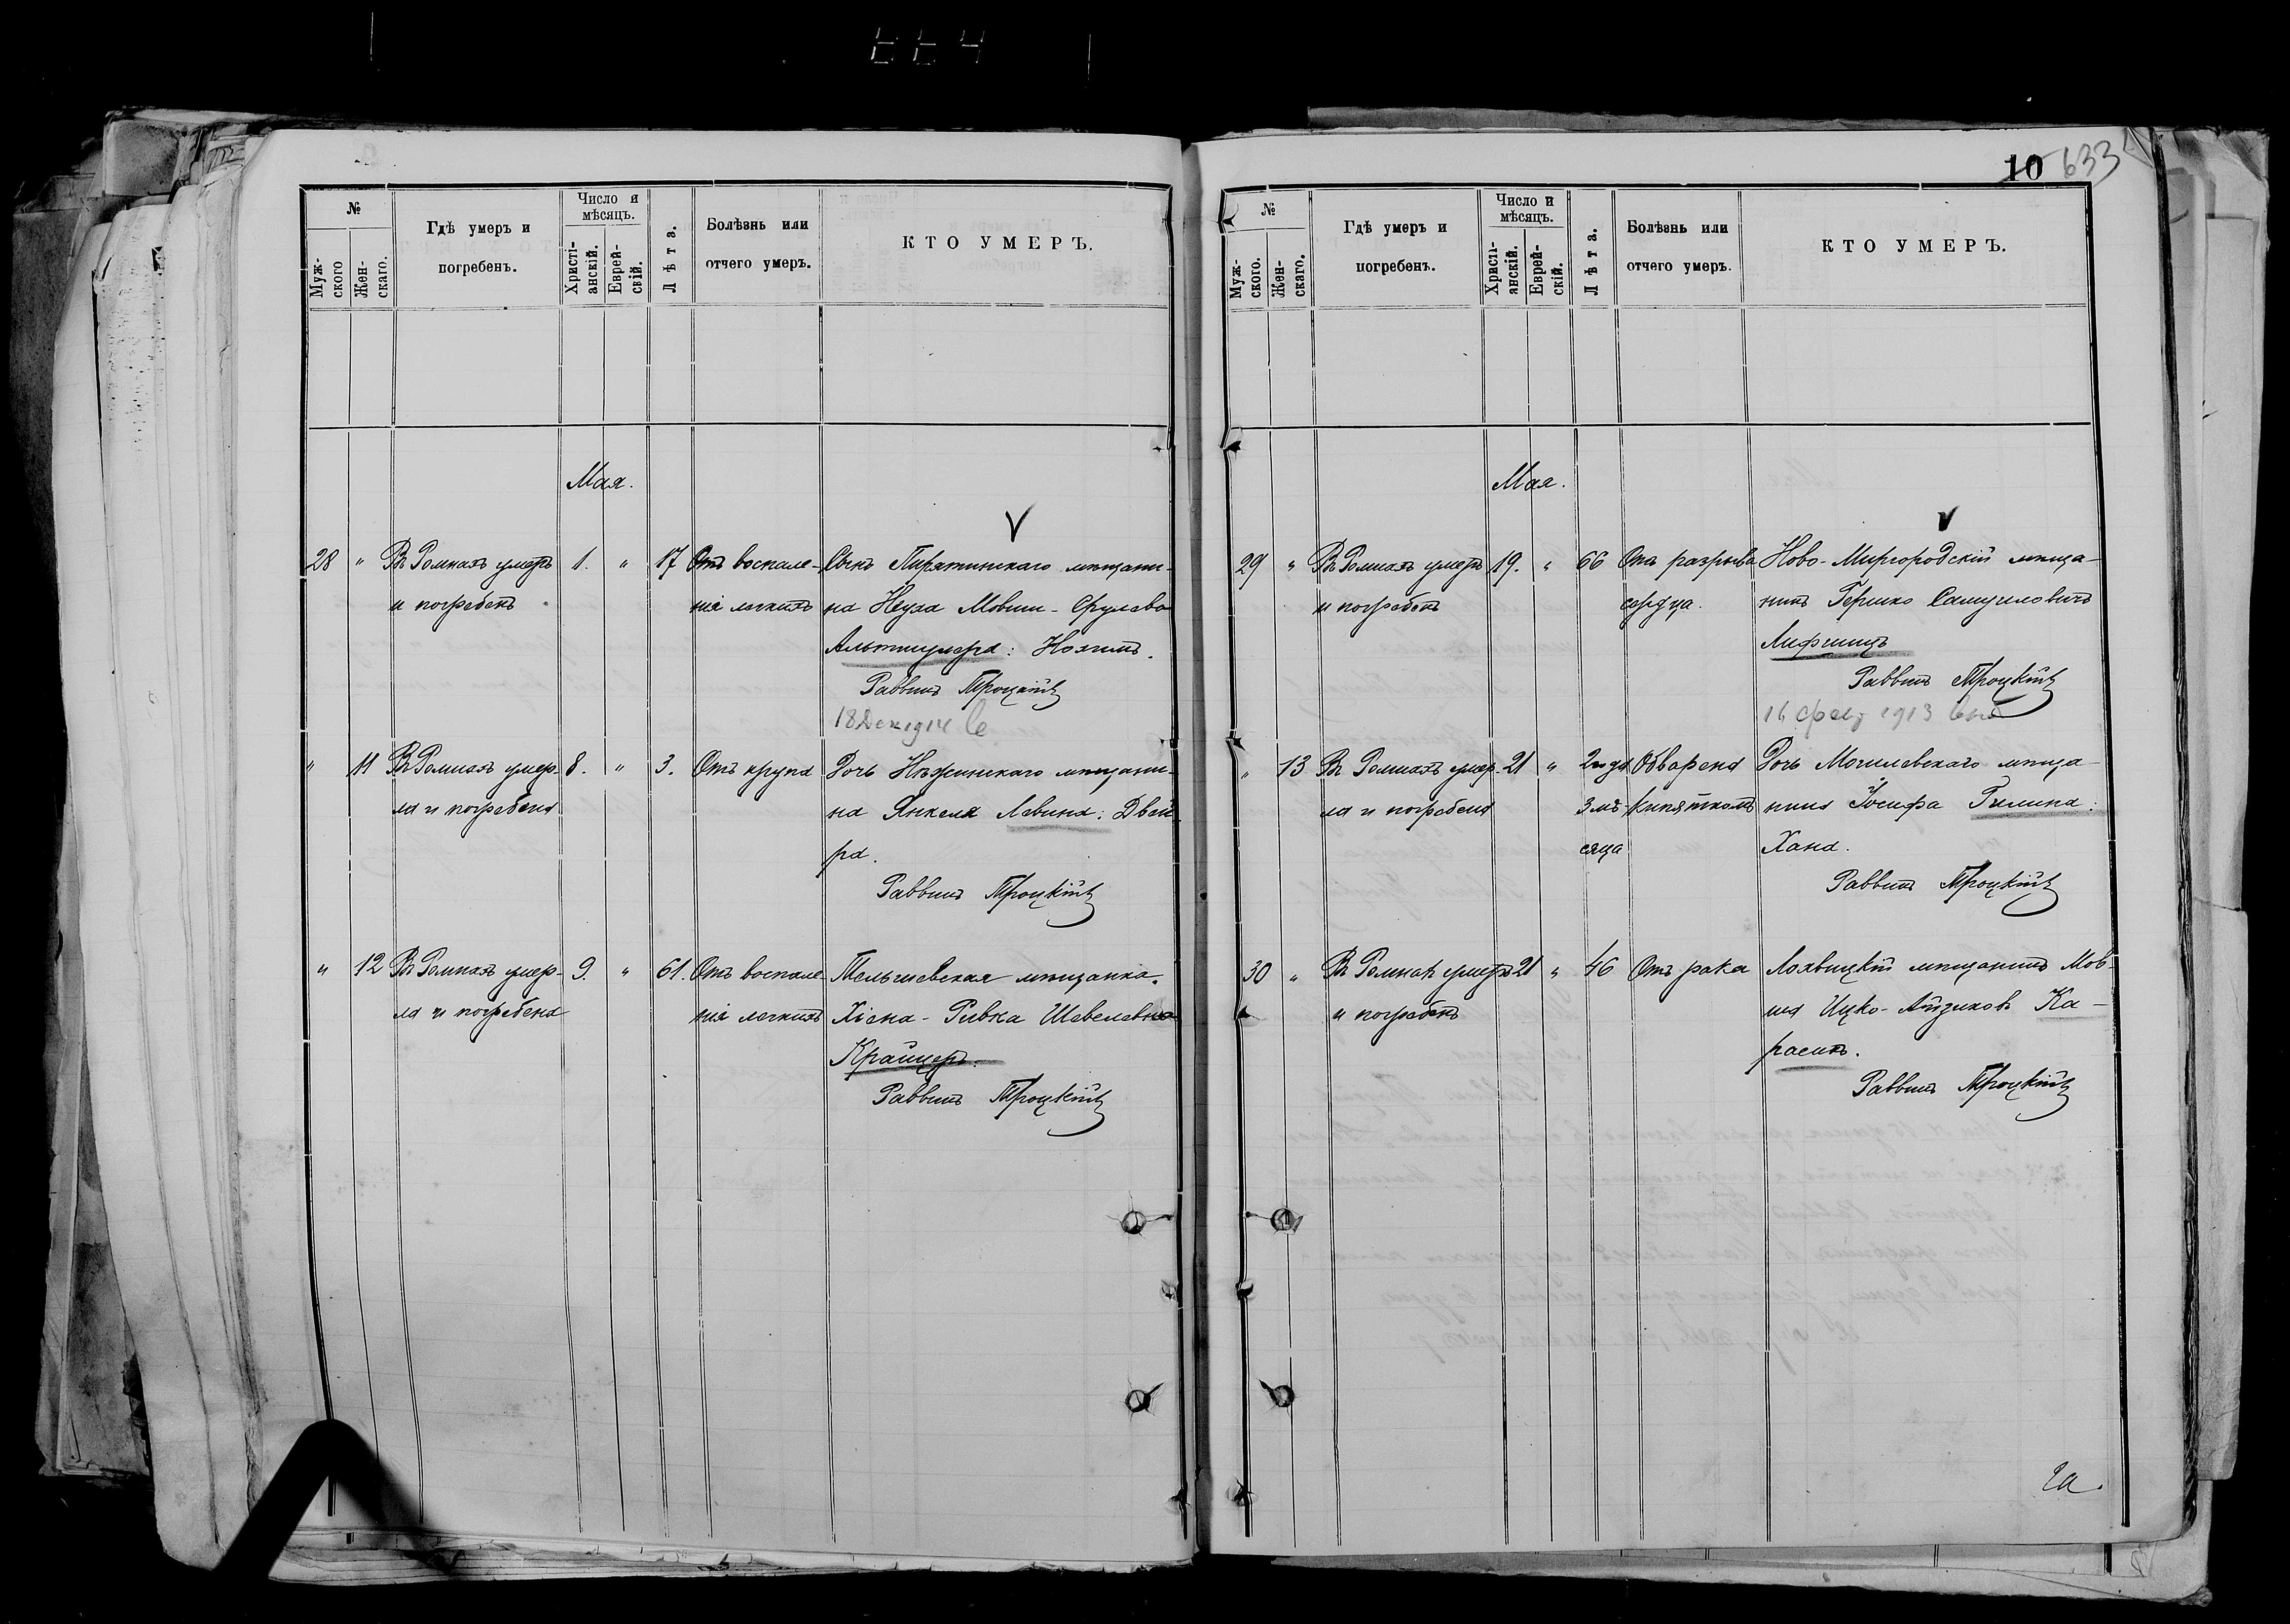 10 633
№
Муж-
ского
Жен-
скаго.
Гдѣ умеръ и
погребенъ.
Число и
мѣсяцъ.
Христі-
анскій.
Еврей-
скій.
Лѣта.
Болѣзнь или
отчего умеръ.
КТО УМЕРЪ.
Мая.
28 " Въ Ромнахъ умеръ 1. " 17 Отъ воспале- Сынъ Пирятинскаго мѣщани-
и погребенъ нія легкихъ на Неуха Мовши-Срулева
Альтшулера: Нохимъ.
Раввинъ Троцкій
18 Дек 1914
" 11 Въ Ромнахъ умер- 8. " 3. Отъ крупа Дочь Нѣжинскаго мѣщани-
ла и погребена на Янкеля Левина: Двей-
ра.
Раввинъ Троцкій
" 12 Въ Ромнахъ умер- 9. " 61. Отъ воспале- Тельшевская мѣщанка.
ла и погребена нія легкихъ Хіена-Ривка Шевелевна
Крайцеръ.
Раввинъ Троцкій
№
Муж-
ского.
Жен-
скаго.
Гдѣ умеръ и
погребенъ.
Число и
мѣсяцъ.
Христі-
анскій.
Еврей-
скій.
Лѣта.
Болѣзнь или
отчего умеръ.
КТО УМЕРЪ.
Мая.
29 " Въ Ромнахъ умеръ 19. " 66 Отъ разрыва Ново-Миргородскій мѣща-
и погребенъ сердца. нинъ Гершко Самуиловичъ
Лифшицъ
Раввинъ Троцкій
16 фев 1913
" 13 Въ Ромнахъ умер- 21 " 2 года Обварена Дочь Могилевскаго мѣща-
ла и погребена 3 мѣ- кипяткомъ нина Іосифа Гилина:
сяца Хана.
Раввинъ Троцкій
30 " Въ Ромнах умеръ 21 " 46 Отъ рака Лохвицкій мѣщанинъ Мов-
и погребенъ ша Ицко-Айзиковъ Ка-
расикъ.
Раввинъ Троцкій